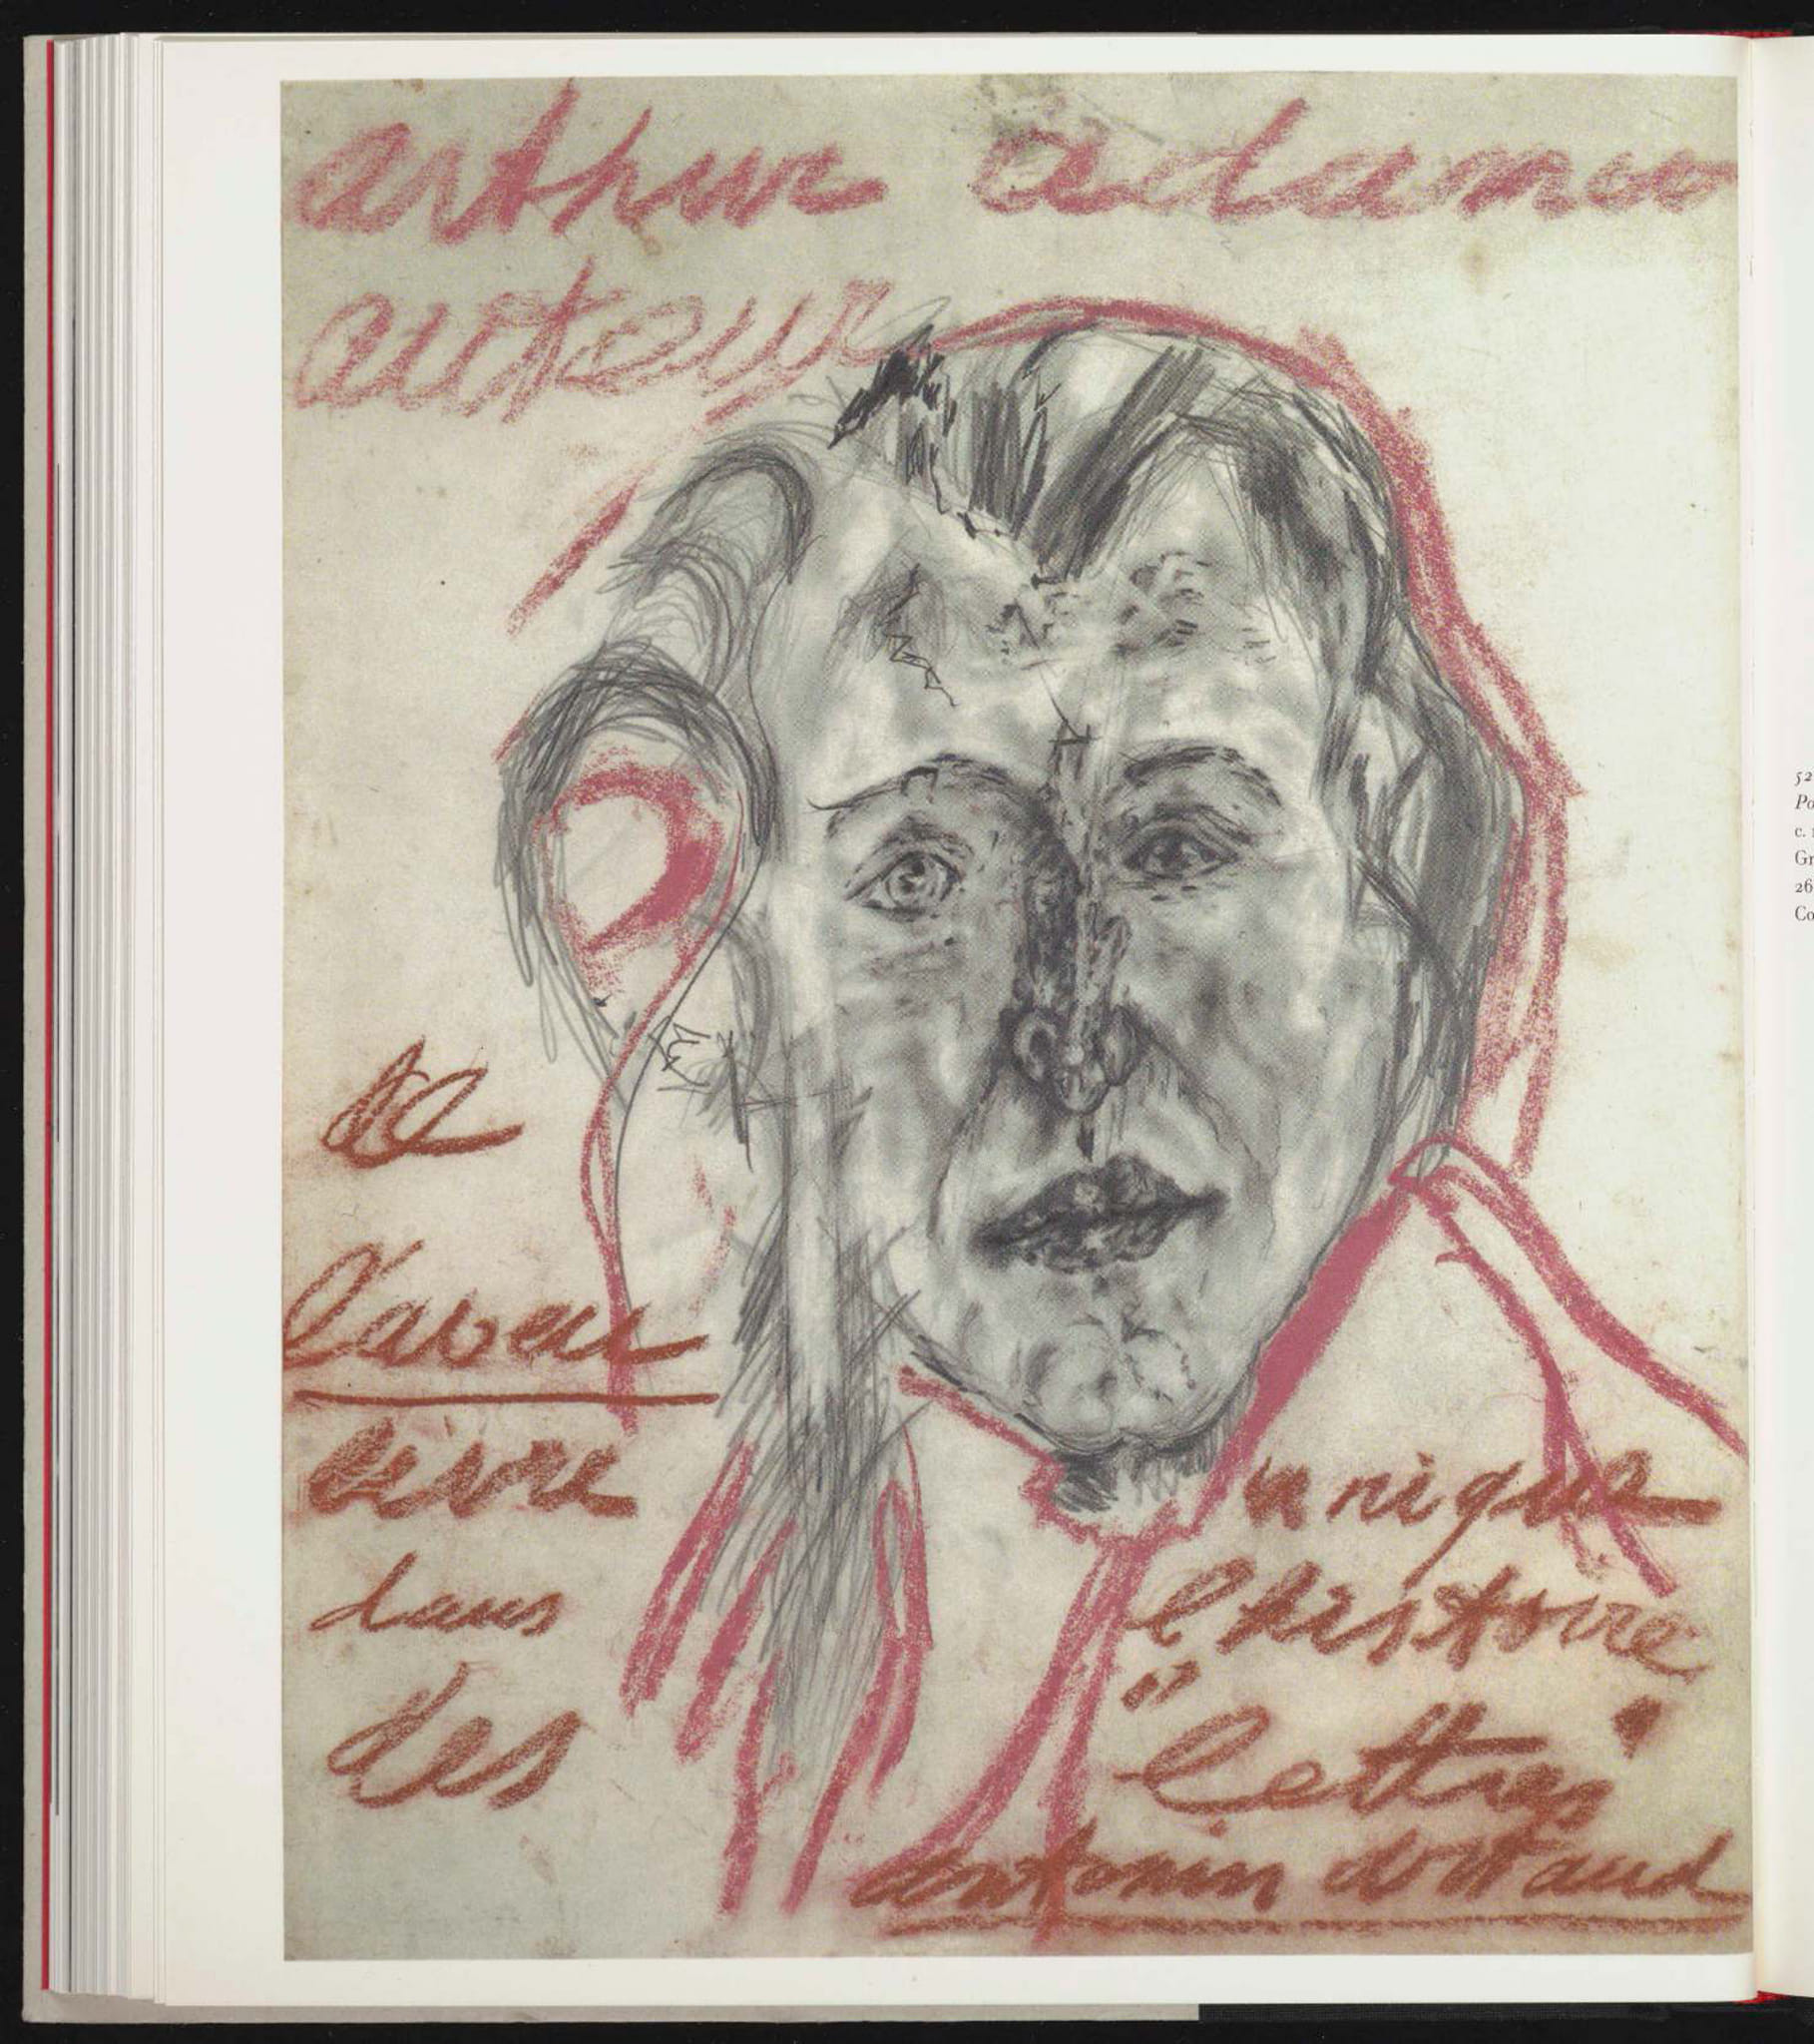 arthur adamov
auteur
de
l'aveu
livre unique
dans l'histoire
des "lettres"
antonin artaud
52
Po
c. 1
Gr
26
Co